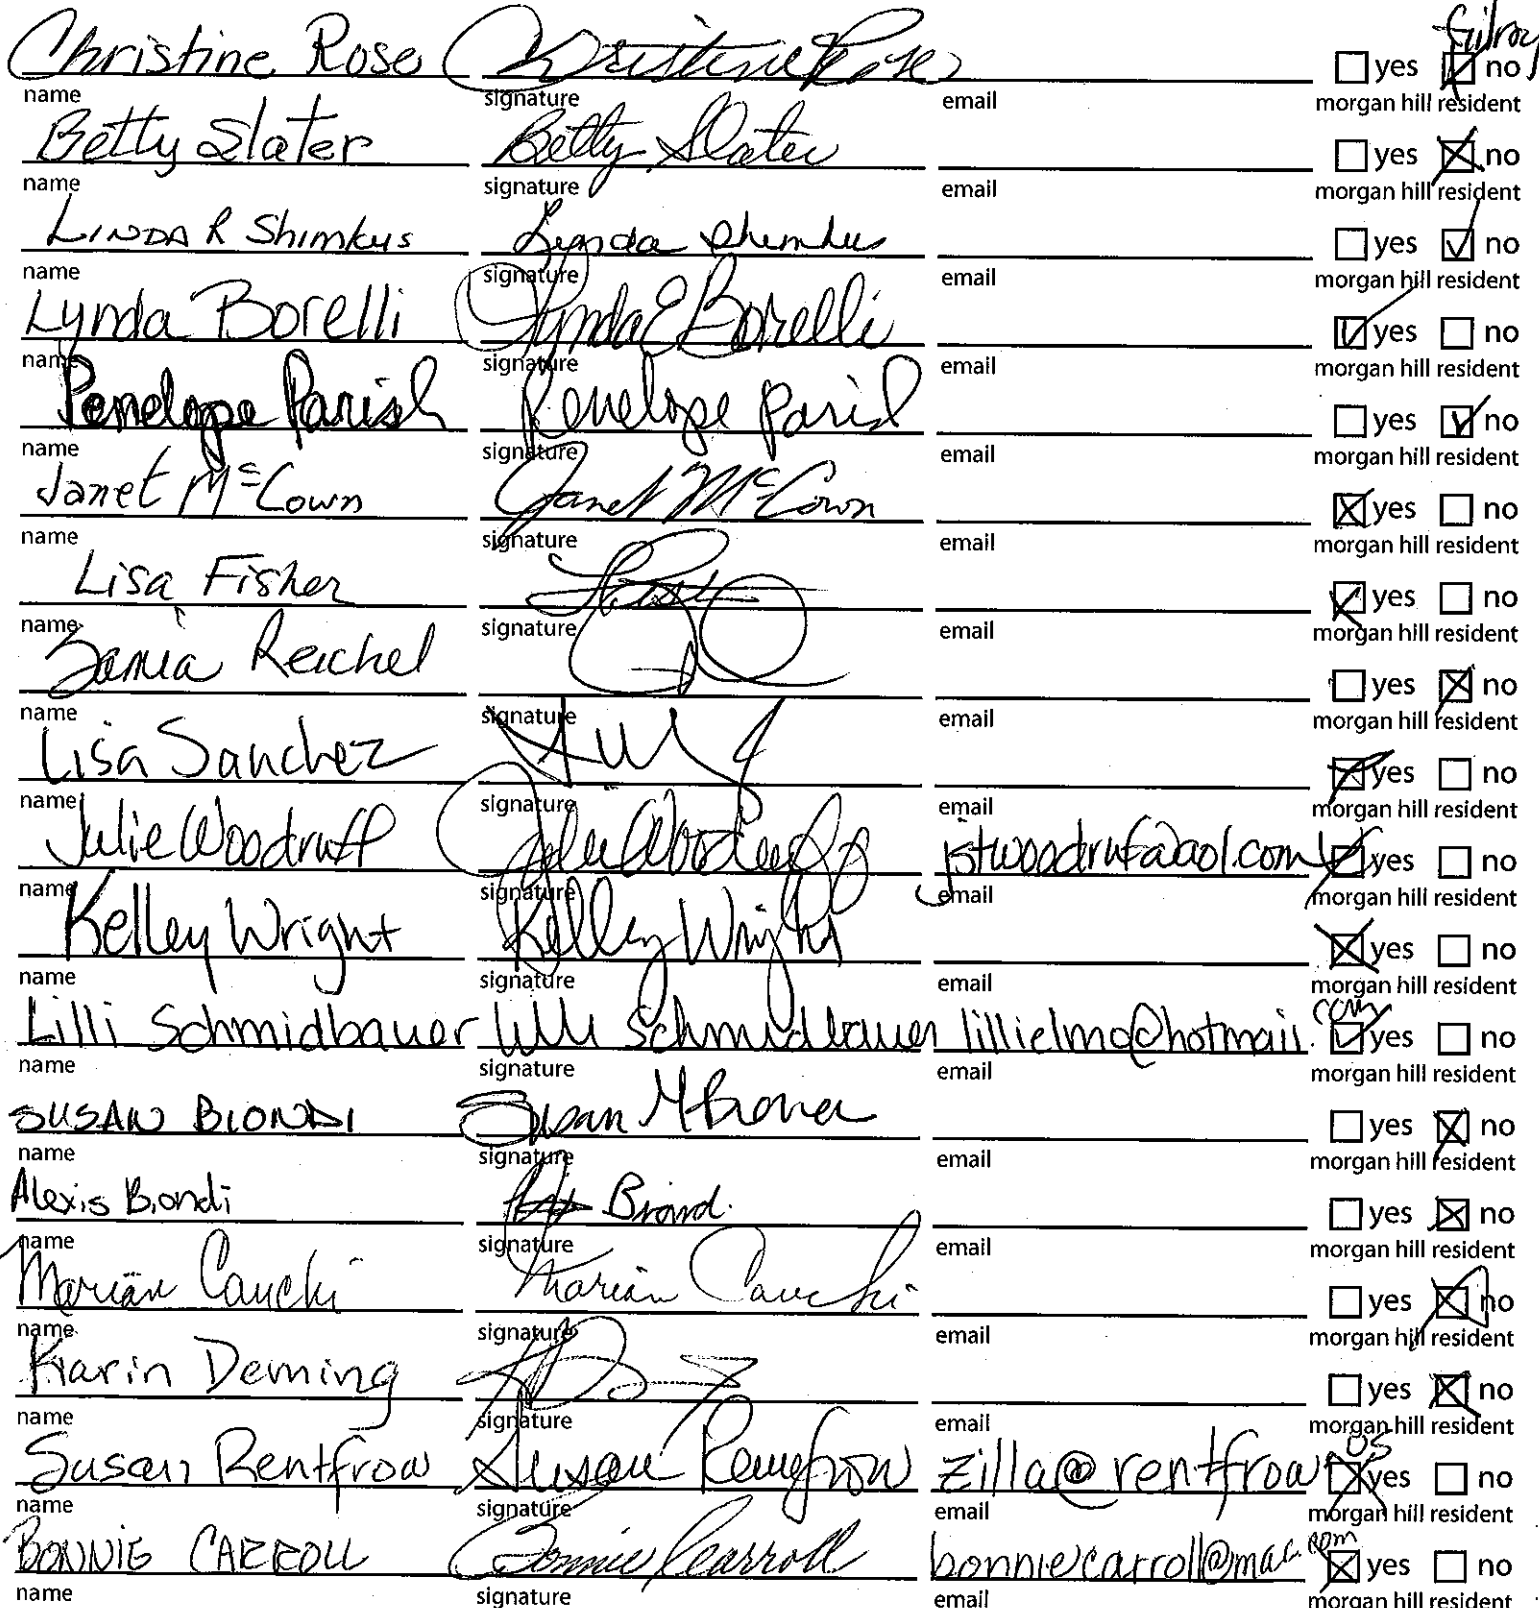 Gilroy
Christine Rose Christine Rose yes no
name signature email morgan hill resident
Betty Slater Betty Slater yes no
name signature email morgan hill resident
LINDA R Shimkus Lynda Shimkus yes no
name signature email morgan hill resident
Lynda Borelli Lynda E Borelli yes no
name signature email morgan hill resident
Penelope Parish Penelope Parish yes no
name signature email morgan hill resident
Janet McCown Janet McCown yes no
name signature email morgan hill resident
Lisa Fisher yes no
name signature email morgan hill resident
Reichel yes no
name signature email morgan hill resident
Lisa Sanchez yes no
name signature email morgan hill resident
Julie Woodruff Julie Woodruff jstwoodruf@aol.com yes no
name signature email morgan hill resident
Kelley Wright Kelley Wright yes no
name signature email morgan hill resident
Lilli Schmidbauer Lilli Schmidbauer lillielmo@hotmail.com yes no
name signature email morgan hill resident
SUSAN BIONDI Susan M Biondi yes no
name signature email morgan hill resident
Alexis Biondi Biond. yes no
name signature email morgan hill resident
Marian Cauchi Marian Cauchi yes no
name signature email morgan hill resident
Karin Deming yes no
name signature email morgan hill resident
Susan Rentfrow Susan Rentfrow zilla@rentfrow.us yes no
name signature email morgan hill resident
BONNIE CARROLL Bonnie Carroll bonniecarroll@mac.com yes no
name signature email morgan hill resident